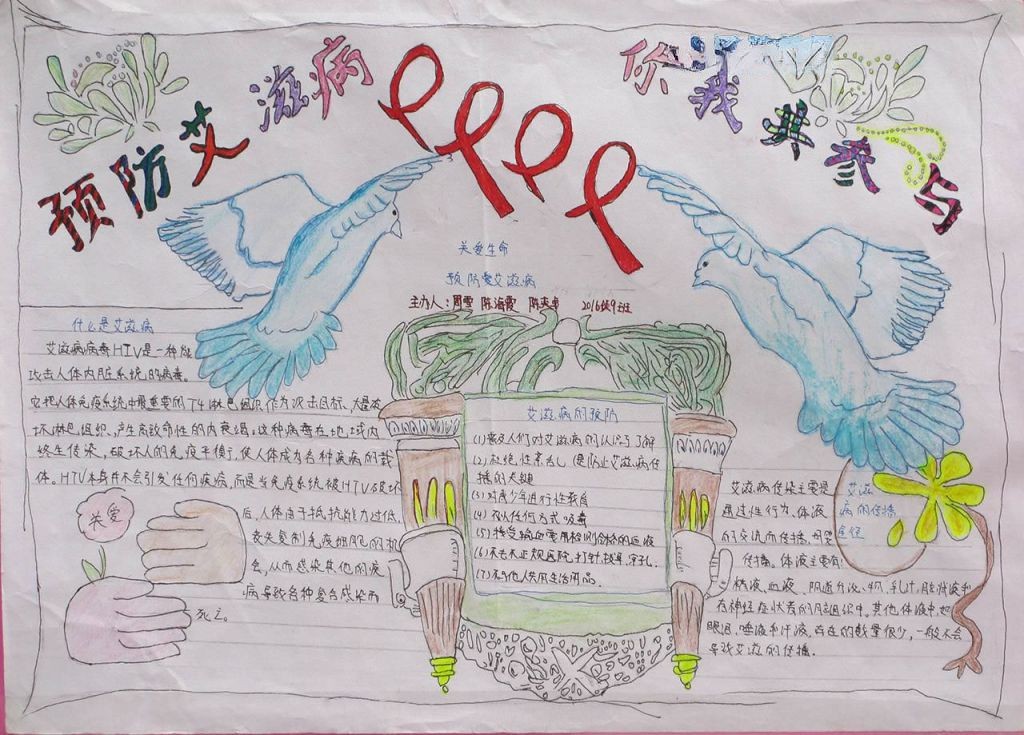 预防艾滋病
你我共参与
关爱生命
预防爱艾滋病
主办人：周雪 陈海霞 2016级9班
什么是艾滋病
艾滋病病毒HIV是一种能
攻击人体内脏系统的病毒。
它把人体免疫系统中最重要的T4淋巴组织作为攻击目标、大量破
坏淋巴组织、产生高致命性的内衰竭。这种病毒在地域内
终生传染，破坏人的免疫平衡，使人体成为各种疾病的载
体。HIV本身并不会引发任何疾病，而是当免疫系统被HIV破坏
后，人体由于抵抗能力过低，
丧失复制免疫细胞的机
会，从而感染其他的疾
病导致各种复合感染而
死亡。
关爱
艾滋病的预防
(1)普及人们对艾滋病的认识了解
(2)杜绝性紊乱(是防止艾滋病传
播的关键
(3)对青少年进行性教育
(4)不以任何方式吸毒
(5)接受输血要用检测合格的血液
(6)不去不正规医院，打针，拔牙，穿孔。
(7)不与他人共用生活用品。
艾滋病传染主要是
通过性行为、体液
的交流而传播，母婴
传播。体液主要有：
精液、血液、阴道分泌物、乳汁、脑脊液和
有神经症状者的脑组织中。其他体液中如
眼泪、唾液和汗液，存在的数量很少，一般不会
导致艾滋的传播。
艾滋
病的传播
途径